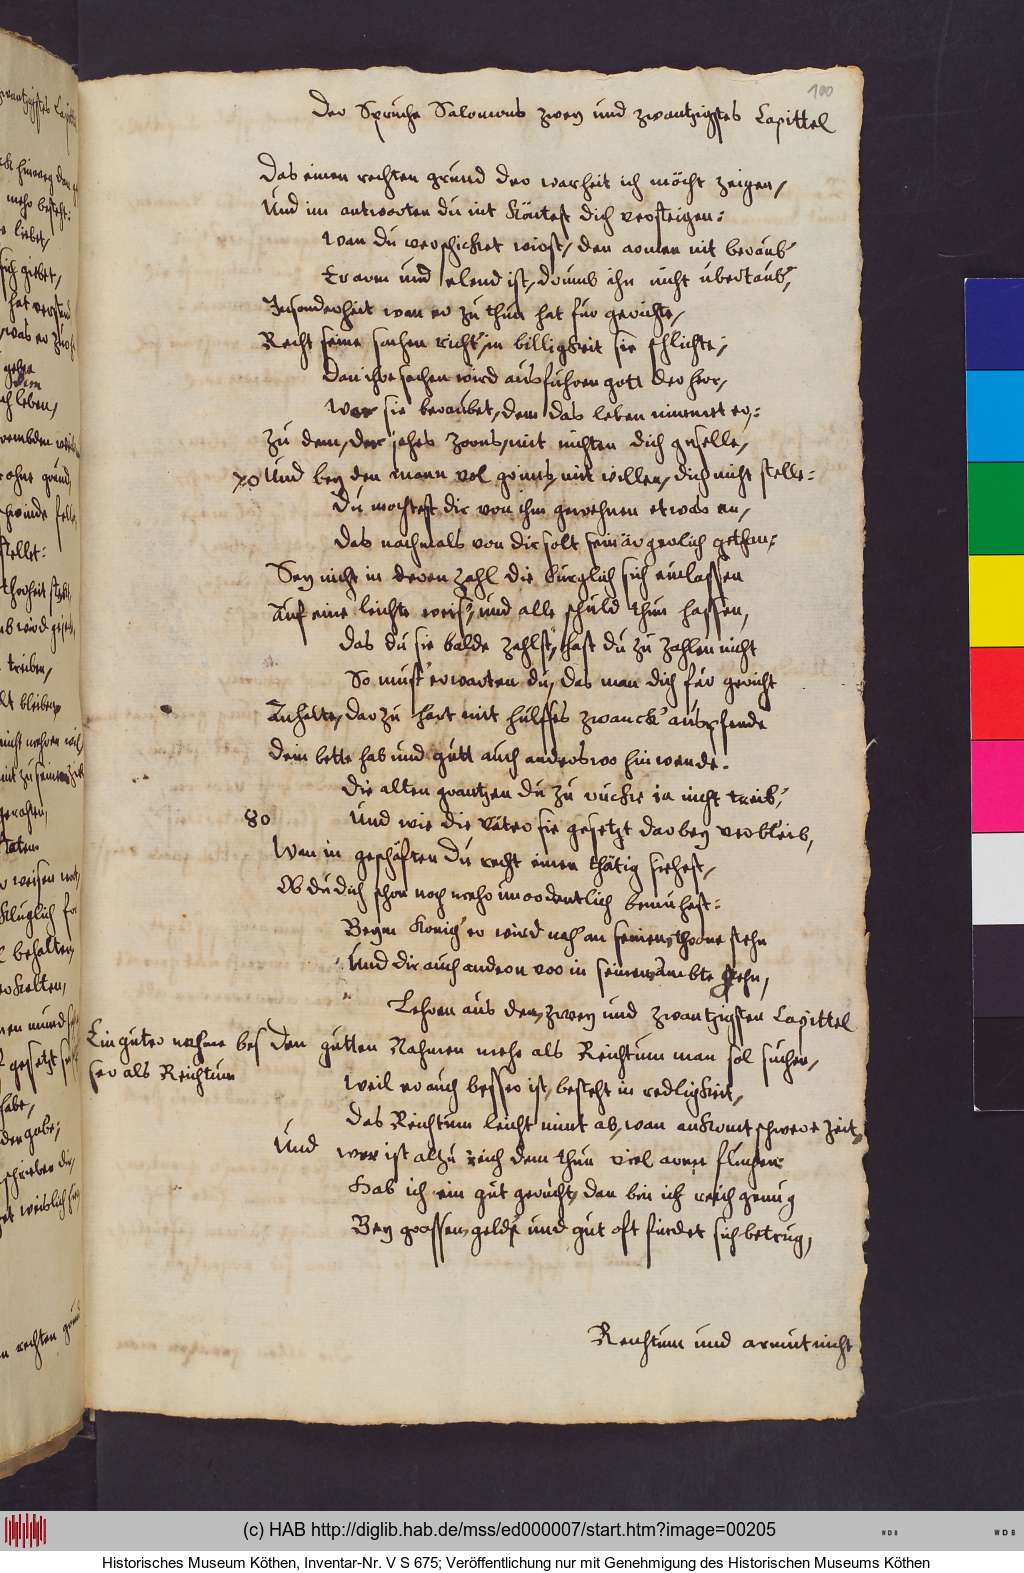 100
Der Spruche Salomons zwey und zwantzigstes Capittel
Das einen rechten grund der warheit ich möcht zeigen,
Und im antworten du nit köntest dich versteigen:
Wan du verschicket wirst, den armen nit beraub'
Er arm und elend ist, drumb ihn nicht ubertaub',
Insonderheit wan er zu thun hat für gerichte,
Recht seine sachen richt', in billigkeit sie schlichte;
Dan ihre sachen wird ausführen gott der herr,
Wer sie beraubet, dem das leben nimmet er:
Zu dem, der jehes zorns, mit nichten dich geselle,
70 Und bey den mann vol grims, mit willen, dich nicht stelle:
Du mochtest dir von ihm gewehnen etwas an,
Das nachmals von dir solt sein ärgerlich gethan:
Sey nicht in deren zahl die bürglich sich einlassen
Auf eine leichte weis', und alle schuld thun fassen,
Das du sie balde zahlst, hast du zu zahlen nicht
So must' erwarten du, das man dich für gericht
Anhalte, darzu hart mit hülffes zwanck' auspfende
Dein bette hab und gutt auch anderswo hinwende.
Die alten grantzen du zu rucke ia nicht treib',
80 Und wie die väter sie gesetzt darbey verbleib,
Wan in geschäften du recht einen thätig siehest,
Ob du dich schon noch mehr unordentlich bemuhest:
Beym König' er wird nah' an seinem throne stehn
Und dir auch andern vor in seinem ambte gehn,
Lehren aus dem, zwey und zwantzigsten Capittel
Ein guter nahme bes
ser als Reichtum
Den gutten Nahmen mehr als Reichtum man sol suchen,
Weil er auch besser ist, besteht in redligkeit,
Das Reichtum leicht nimt ab, wan ankomt schwere zeit,
Und wer ist alzu reich dem thun viel arme fluchen:
Hab ich ein gut gerücht, dan bin ich reich genug
Bey grossem geld' und gut oft findet sich betrug,
Reichtum und armut nicht
(c) HAB http://diglib.hab.de/mss/ed000007/start.htm?image=00205
WDB
WDB
Historisches Museum Köthen, Inventar-Nr. V S 675; Veröffentlichung nur mit Genehmigung des Historischen Museums Köthen